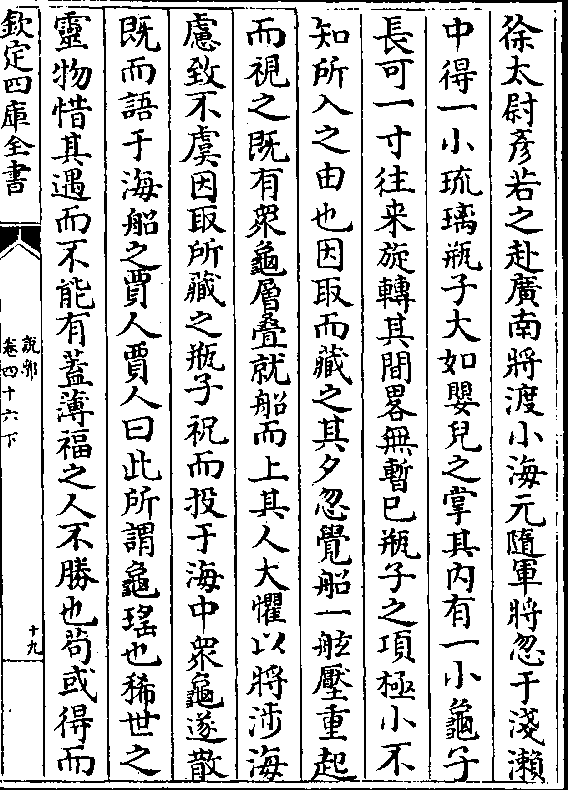 徐太尉彥若之赴廣南將渡小海元隨軍將忽于淺瀨
中得一小琉璃瓶子大如嬰兒之掌其内有一小龜子
長可一寸往来旋轉其間畧無暫已瓶子之項極小不
知所入之由也因取而藏之其夕忽覺船一舷壓重起
而視之既有衆龜層疊就船而上其人大懼以將渉海
慮致不虞因取所藏之瓶子祝而投于海中衆龜遂散
既而語于海船之賈人賈人曰此所謂龜瑤也稀世之
靈物惜其遇而不能有蓋薄福之人不勝也茍或得而
欽定四庫全書
說郛
卷四十六下
十九